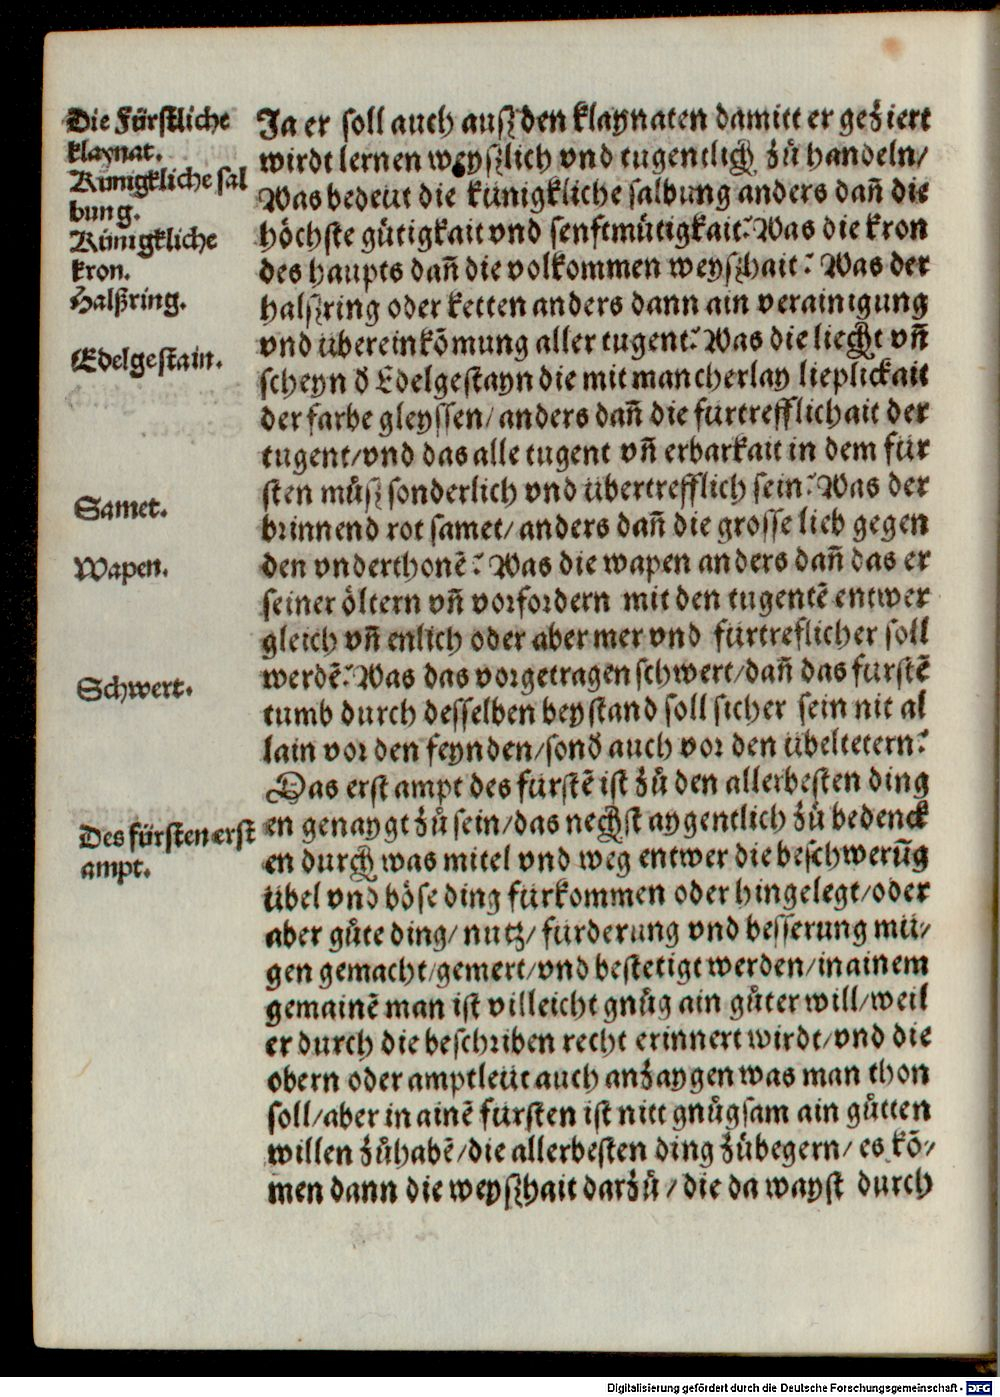 Die Fürstliche
klaynat.
Künigkliche sal
bung.
Künigkliche
kron.
Halßring.
Edelgestain.
Samet.
Wapen.
Schwert.
Des fürsten erst
ampt.
Ja er soll auch auß den klaynaten damitt er geziert
wirdt lernen weyßlich vnd tugentlich zů handeln/
Was bedeut die künigkliche salbung anders dañ die
höchste gütigkait vnd senftmütigkait? Was die kron
des haupts dañ die volkommen weyßhait? Was der
halßring oder ketten anders dann ain verainigung
vnd übereinkõmung aller tugent? Was die liecht vñ
scheyn d̄ Edelgestayn die mit mancherlay lieplickait
der farbe gleyssen/ anders dañ die fürtrefflichait der
tugent/vnd das alle tugent vñ erbarkait in dem für
sten můß sonderlich vnd übertrefflich sein? Was der
brinnend rot samet/ anders dañ die grosse lieb gegen
den vnderthonẽ? Was die wapen anders dañ das er
seiner öltern vñ vorfordern mit den tugentẽ entwer
gleich vñ enlich oder aber mer vnd fürtreflicher soll
werdẽ? Was das vorgetragen schwert/dañ das fürstẽ
tumb durch desselben beystand soll sicher sein nit al
lain vor den feynden/sond̄ auch vor den übeltetern?
Das erst ampt des fürstẽ ist zů den allerbesten ding
en genaygt zů sein/das nechst aygentlich zů bedenck
en durch was mitel vnd weg entwer die beschwerũg
übel vnd böse ding fürkommen oder hingelegt/oder
aber gůte ding/ nutz/ fürderung vnd besserung mü/
gen gemacht/gemert/vnd bestetigt werden/in ainem
gemainẽ man ist villeicht gnůg ain gůter will/weil
er durch die beschriben recht erinnert wirdt/vnd die
obern oder amptleüt auch anzaygen was man thon
soll/aber in ainẽ fürsten ist nitt gnůgsam ain gůtten
willen zůhabẽ/die allerbesten ding zůbegern/ es kõ/
men dann die weyßhait darzů/die da wayst durch
Digitalisierung gefördert durch die Deutsche Forschungsgemeinschaft - DFG